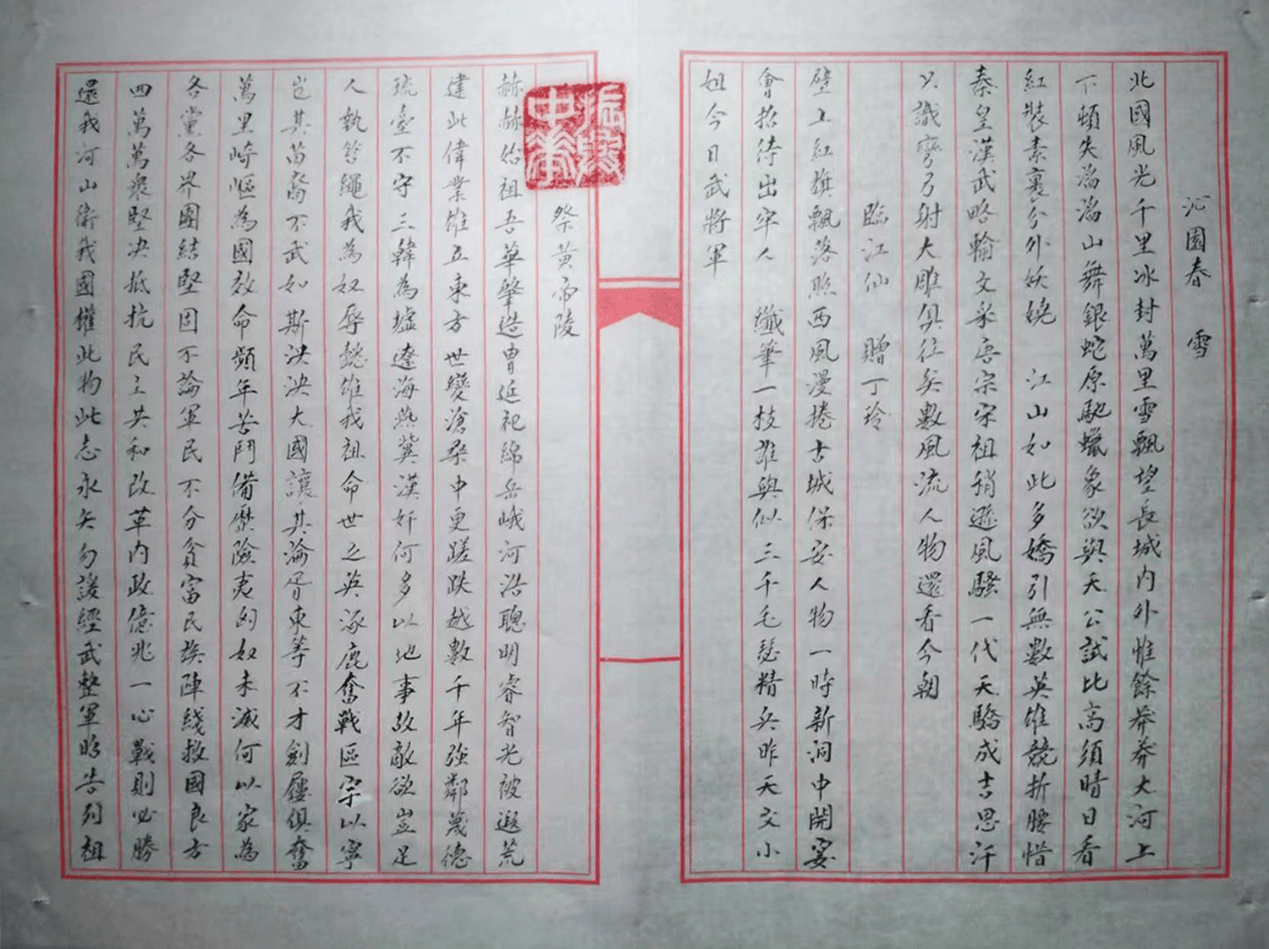 沁園春 雪
北國風光千里冰封萬里雪飄望長城內外惟餘莽莽大河上
下頓失滔滔山舞銀蛇原馳蠟象欲與天公試比高須晴日看
紅裝素裹分外妖嬈 江山如此多嬌引無數英雄競折腰惜
秦皇漢武略輸文采唐宗宋祖稍遜風騷一代天驕成吉思汗
只識彎弓射大雕俱往矣數風流人物還看今朝
臨江仙 贈丁玲
壁上紅旗飄落照西風漫捲古城保安人物一時新洞中開宴
會招待出牢人 纖筆一枝誰與似三千毛瑟精兵昨天文小
姐今日武將軍
振興中華
祭黃帝陵
赫赫始祖吾華肇造冑延祀綿岳峨河浩聰明睿智光被遐荒
建此偉業雄立東方世變滄桑中更蹉跌越數千年強鄰蔑德
琉臺不守三韓為墟遼海燕冀漢奸何多以地事敵敵欲豈足
人執笞繩我為奴辱懿維我祖命世之英涿鹿奮戰區宇以寧
豈其苗裔不武如斯泱泱大國讓其淪胥東等不才劍屨俱奮
萬里崎嶇為國效命頻年苦鬥備歷險夷匈奴未滅何以家為
各黨各界團結堅固不論軍民不分貧富民族陣綫救國良方
四萬萬衆堅決抵抗民主共和改革內政億兆一心戰則必勝
還我河山衛我國權此物此志永矢勿諼經武整軍昭告列祖